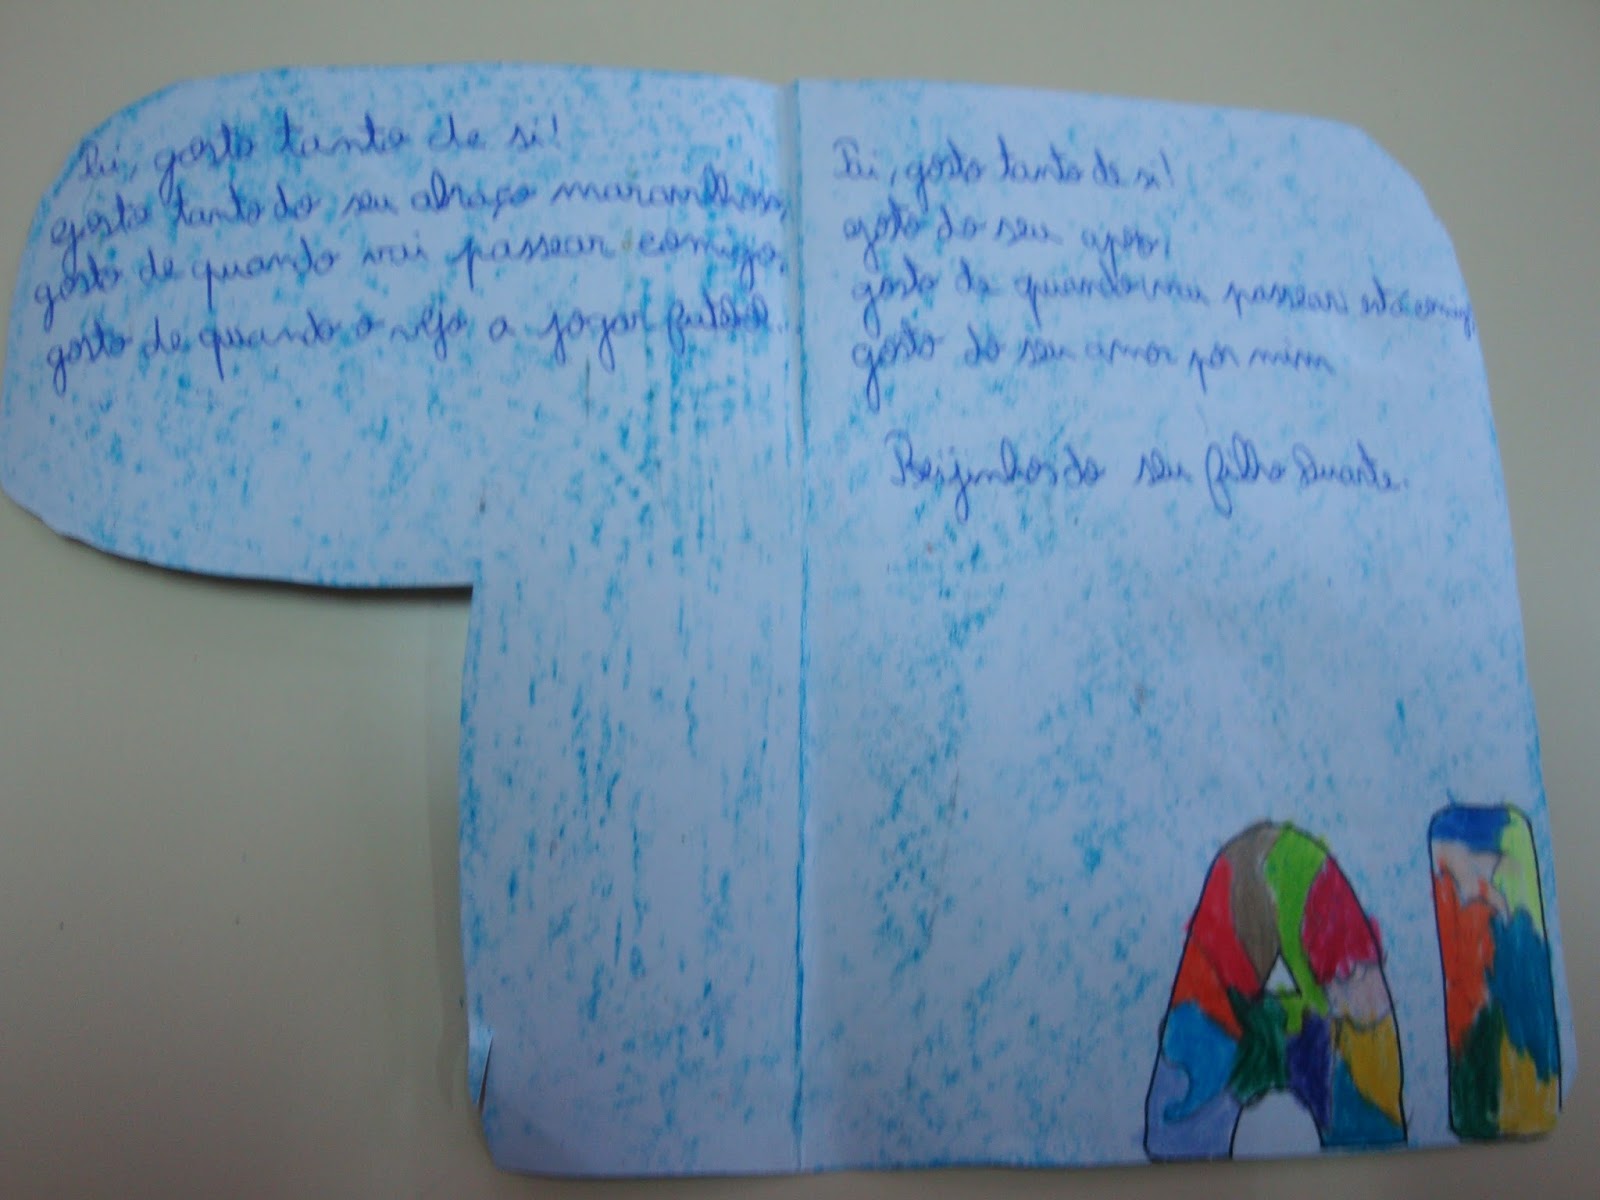 Pai, gosto tanto de si!
gosto tanto do seu abraço maravilhoso,
gosto de quando vai passear comigo,
gosto de quando o vejo a jogar futebol.
Pai, gosto tanto de si!
gosto do seu apoio,
gosto de quando vai passear comigo,
gosto do seu amor por mim
Beijinhos do seu filho Duarte.
AI